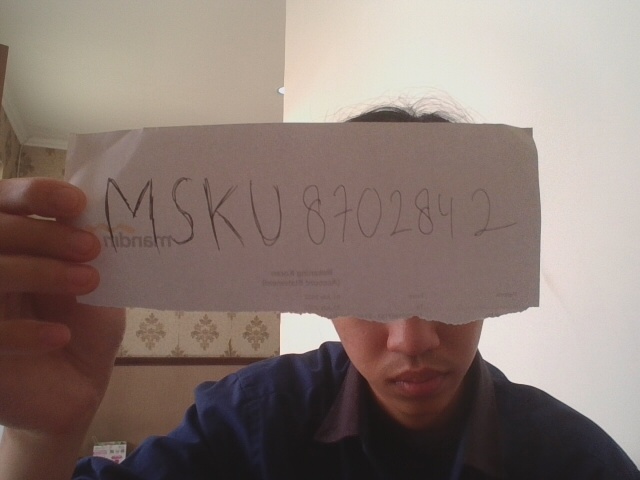 MSKU 8702842
mandiri